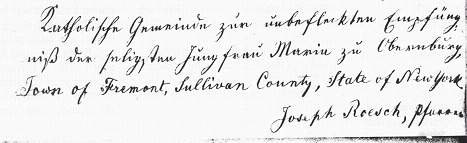 Katholische Gemeinde zur unbefleckten Empfäng
niß der seligsten Jungfrau Maria zu Obernburg,
Town of Fremont, Sullivan County, State of New York
Joseph Roesch, Pfarrer